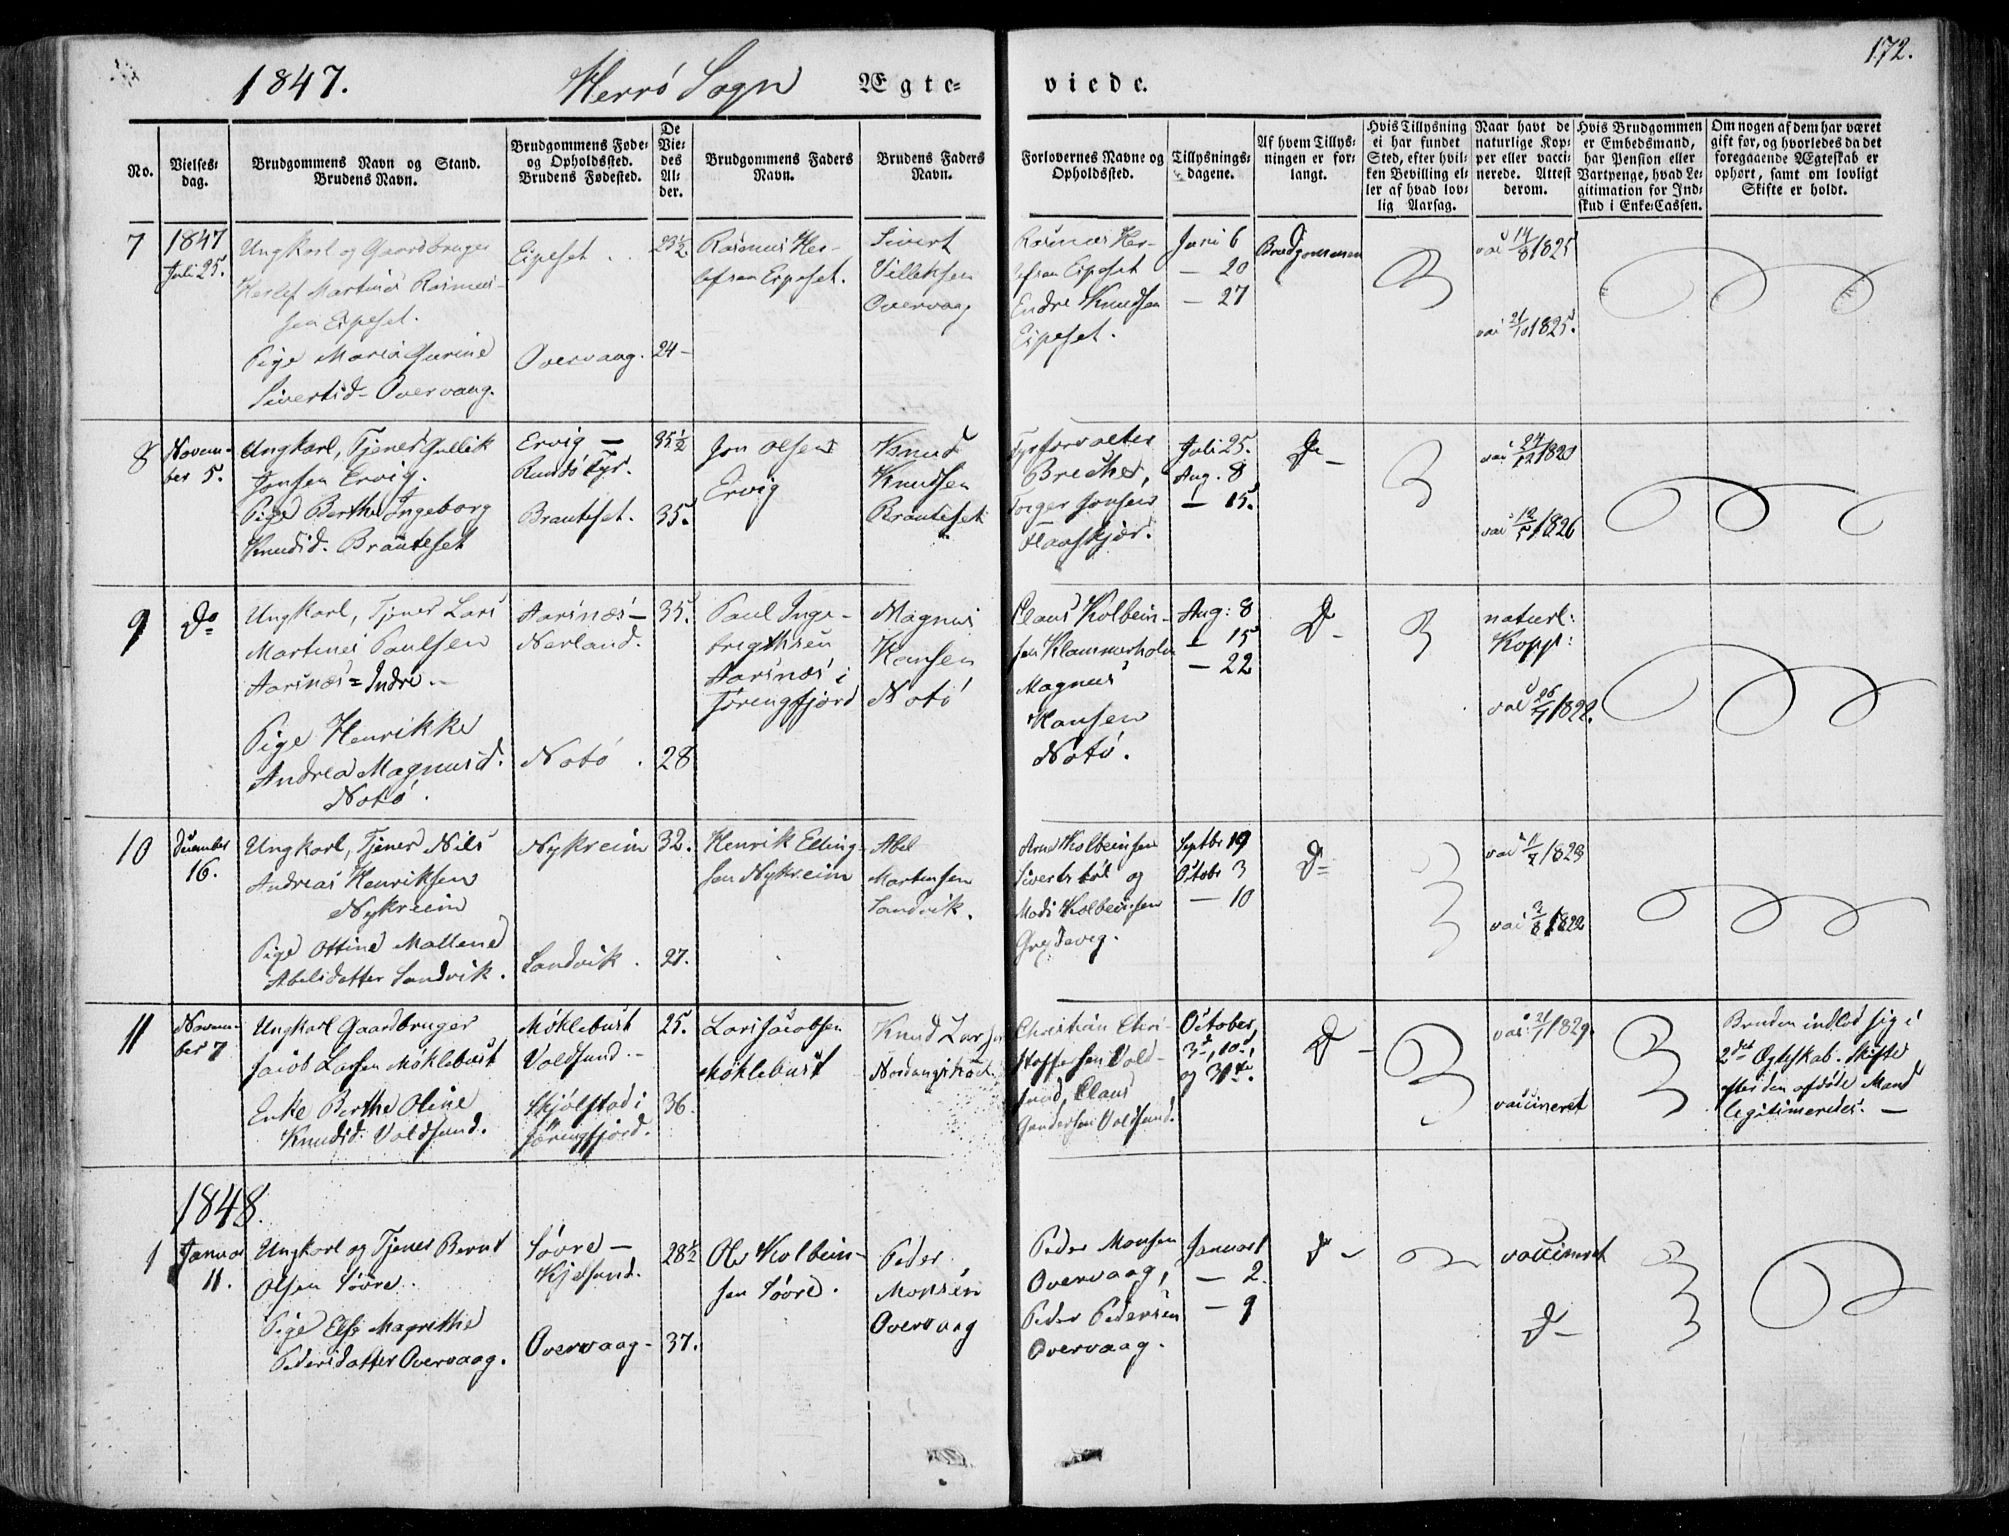 172.
1847. Herrö Sogn Ægte- viede.
No.
Vielses-
dag.
Brudgommens Navn og Stand.
Brudens Navn.
Brudgommens Føde-
og Opholdssted.
Brudens Fødested.
De
Vie-
des
Al-
der.
Brudgommens Faders
Navn.
Brudens Faders
Navn.
Forlovernes Navne og
Opholdssted.
Tillysnings-
dagene.
Af hvem Tillys-
ningen er for-
langt.
Hvis Tillysning
ei har fundet
Sted, efter hvil-
ken Bevilling el-
ler af hvad lov-
lig Aarsag.
Naar havt de
naturlige Kop-
per eller vacci-
nerede. Attest
derom.
Hvis Brudgommen
er Embedsmand,
har Pension eller
Vartpenge, hvad Le-
gitimation for Ind-
skud i Enke-Cassen.
Om nogen af dem har været
gift før, og hvorledes da det
foregaaende Ægteskab er
ophørt, samt om lovligt
Skifte er holdt.
7
1847
Juli 25.
Ungkarl og Gaardbruger
Herlef Martinus Rasmus-
sen Eipeset.
Pige Maria Gurine
Sivertsd. Overvaag.
Eipeset
Overvaag.
23½
24
Rasmus Her-
lefsen Eipeset.
Sivert
Villeksen
Overvaag
Rasmus Her-
lefsen Eipeset
Endre Knudsen
Eipeset.
Juni 6
— 20
— 27
Brudgommen
vac 14/8 1825
vac 21/10 1825.
8
Novem-
ber 5.
Ungkarl, Tjener Gullik
Jonsen Ervig.
Pige Berthe Ingeborg
Knudsd. Brauteset
Ervig —
Rundö Fyr.
Brauteset.
35½
35.
Jon Olsen
Ervig
Knud
Knudsen
Brauteset
Fyrforvalter
Brecher,
Torger Jonsen
Flaaskjær.
Juli 25.
Aug. 8
— 15.
Do
vac 24/12 1820
vac 12/5 1826
9
Do
Ungkarl, Tjener Lars
Martinus Paulsen
Aarsnæs = Indre
Pige Henrikke
Andrea Magnusd.
Notö.
Aarsnæs —
Nerland.
Notö.
35.
28
Paul Inge-
brigtsen
Aarsnæs i
Jöringfjord
Magnus
Hansen
Notö
Claus Kolbein-
sen Klammerholm
Magnus
Hansen
Notö.
Aug: 8
— 15
— 22
Do
naturl:
Kopp:
vac 26/7 1822.
10
December
16.
Ungkarl, Tjener Nils
Andreas Henriksen
Nykreim
Pige Ottine Mallene
Abelsdatter Sandvik.
Nykreim
Sandvik.
32.
27.
Henrik Elling-
sen Nykreim
Abel
Martensen
Sandvik.
Arne Kolbeinsen
Sivertstöl og
Mads Kolbeinsen
Septbr 19
Octobr 3
— 10
Do
vac 11/7 1823
vac 3/8 1822
11
Novem-
ber 7
Ungkarl Gaardbruger
Jacob Larsen Möklebust
Enke Berthe Oline
Knudsd. Voldsund.
Möklebust
Voldsund.
Skjölstad i
Jöringfjord.
25.
36.
Lars Jacobsen
Möklebust
Knud Larsen
Christian Chri-
stoffersen Vold-
sund, Claus
Gundersen Voldsund.
October,
3d, 10d,
og 31te.
Do
vac. 21/7 1829.
vaccineret
Bruden indlod sig i
2det Ægteskab. Skifte
efter den afdöde Mand
legitimeredes. —
1848.
1
Januar
11.
Ungkarl og Tjener Bernt
Olsen Sövre
Pige Else Magrithe
Pedersdatter Overvaag.
Sövre —
Kjelsund.
Overvaag —
28½
37.
Ole Kolbein-
sen Sövre.
Peder
Monsen
Overvaag
Peder Monsen
Overvaag,
Peder Pedersen
Overvaag.
Januar 1
— 2.
— 9
Do
vaccineret
Do